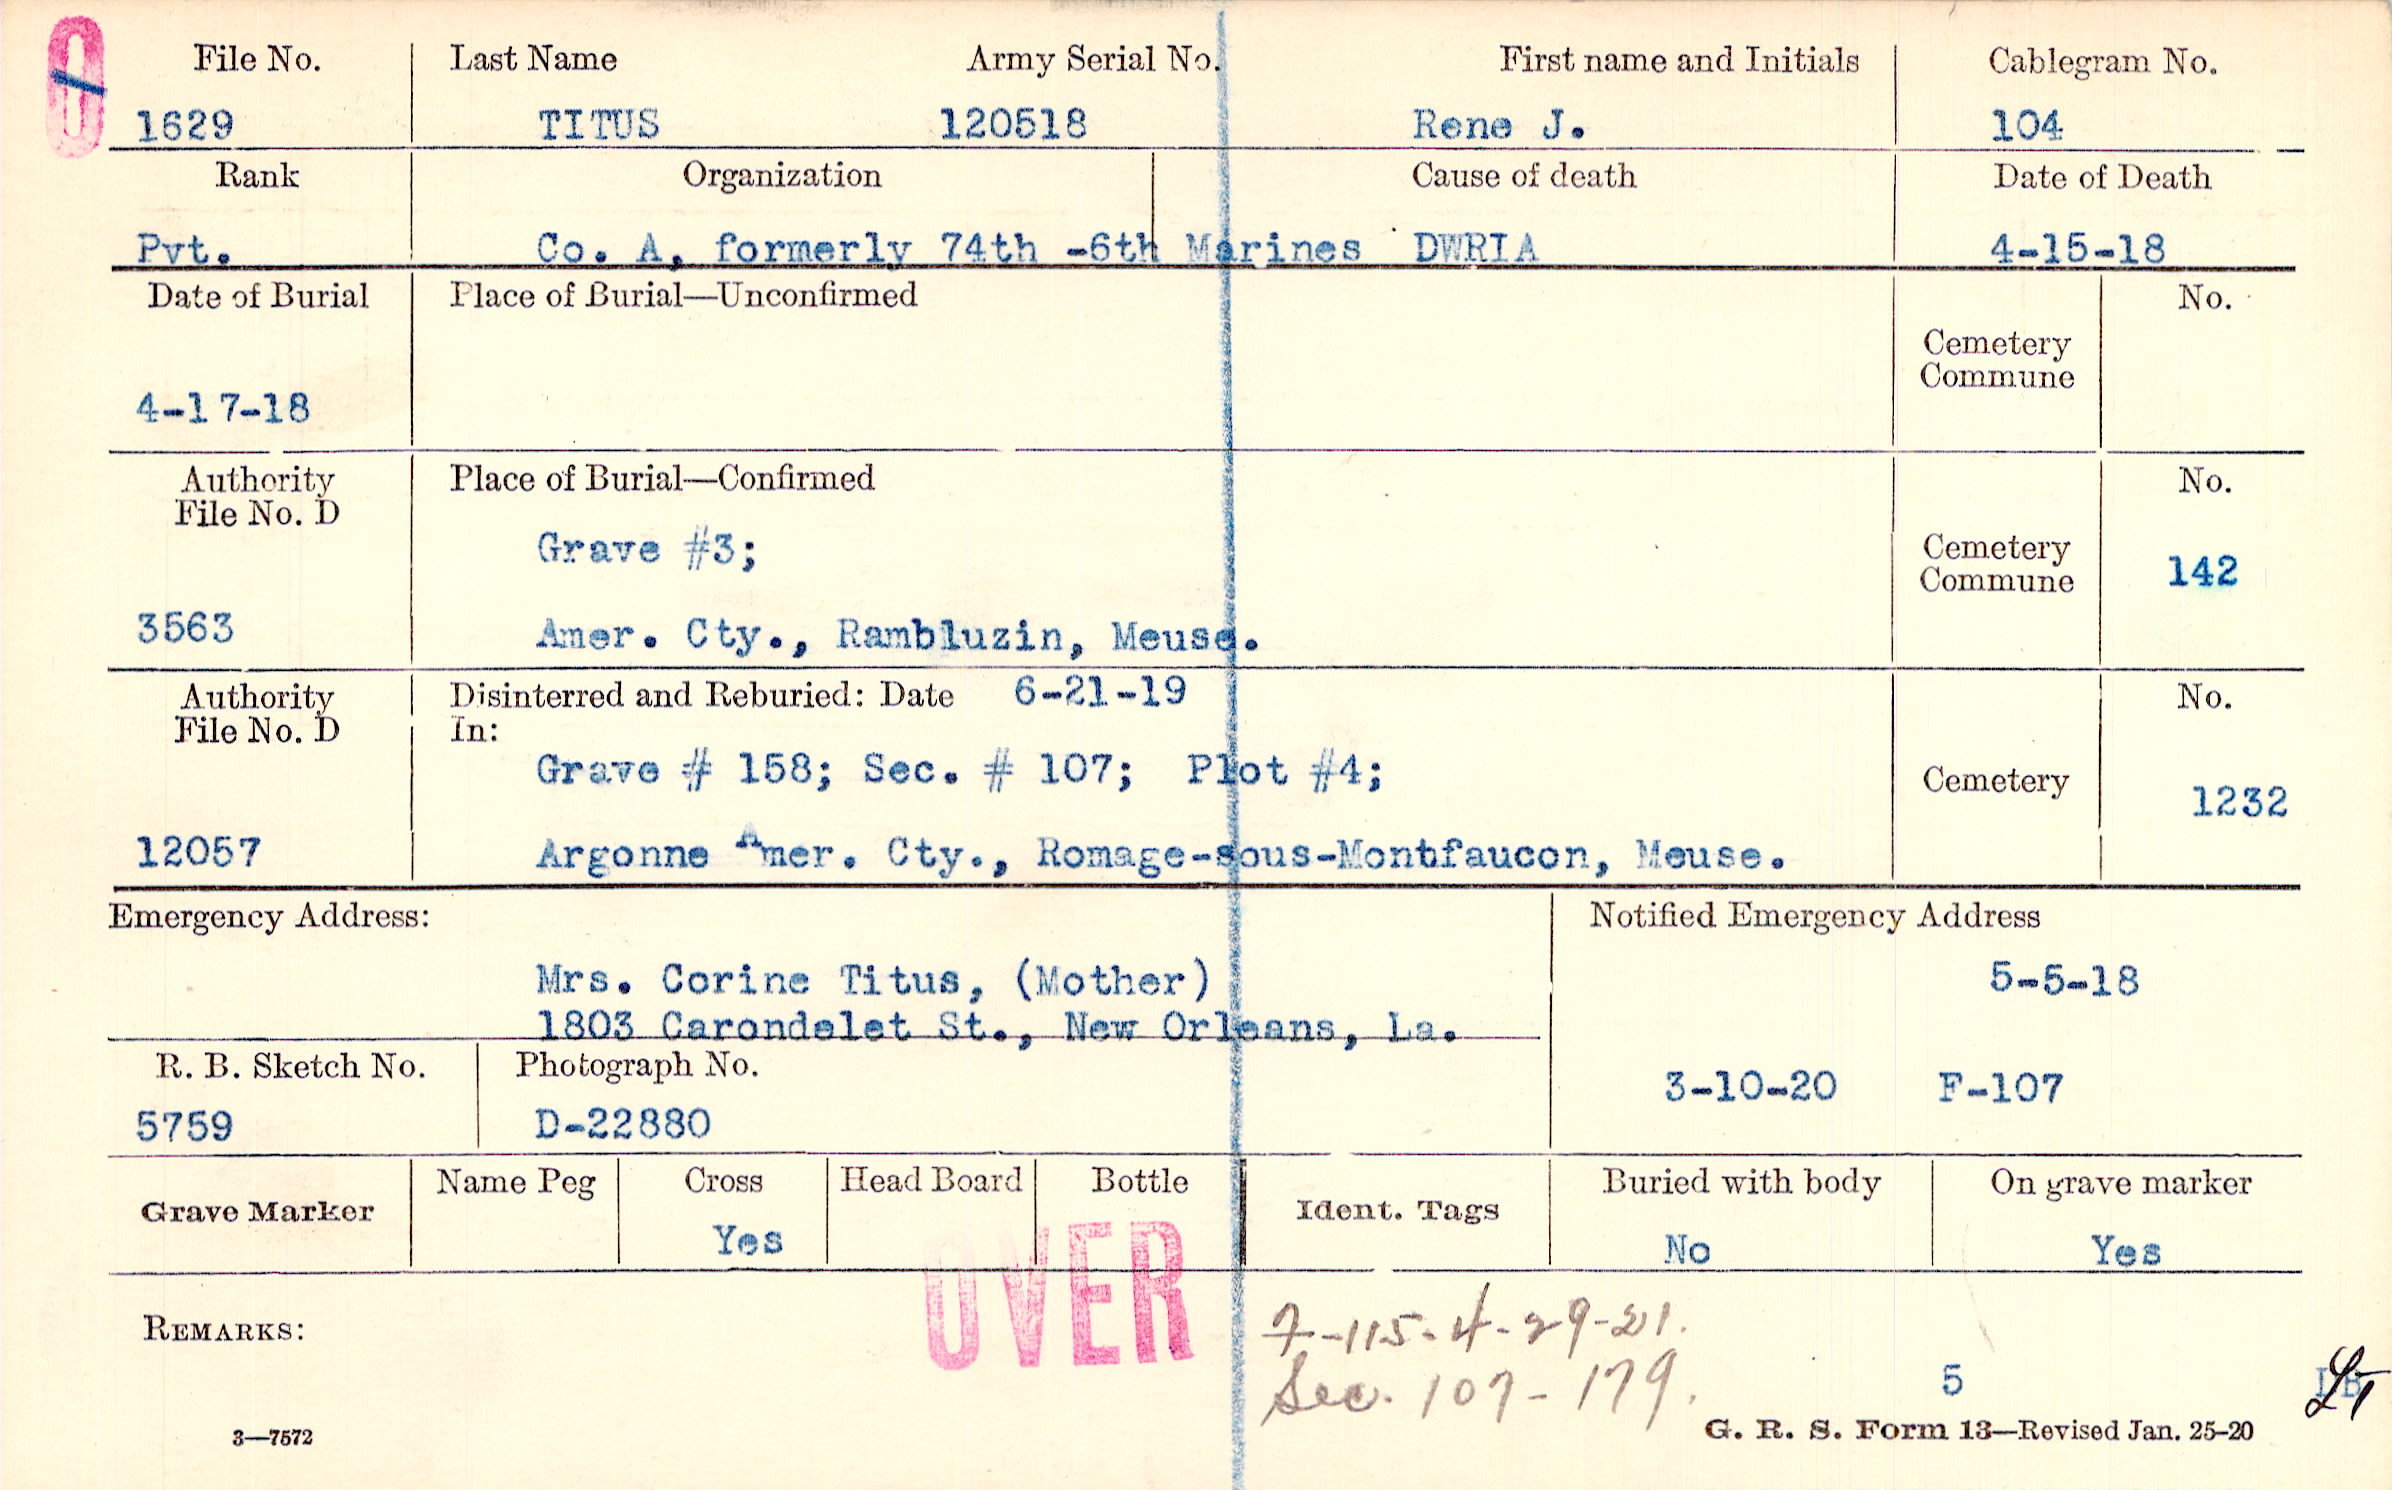 O
File No. Last Name Army Serial No. First name and Initials Cablegram No.
1629 TITUS 120518 Rene J. 104
Rank Organization Cause of death Date of Death
Pvt. Co. A, formerly 74th -6th Marines DWRIA 4-15-18
Date of Burial Place of Burial—Unconfirmed No.
Cemetery
Commune
4-17-18
Authority Place of Burial—Confirmed No.
File No. D
Grave #3;
Cemetery
Commune 142
3563 Amer. Cty., Rambluzin, Meuse.
Authority Disinterred and Reburied: Date 6-21-19 No.
File No. D In:
Grave # 158; Sec. # 107; Plot #4;
Cemetery 1232
12057 Argonne Amer. Cty., Romage-sous-Montfaucon, Meuse.
Emergency Address: Notified Emergency Address
Mrs. Corine Titus, (Mother) 5-5-18
1803 Carondelet St., New Orleans, La.
R. B. Sketch No. Photograph No.
3-10-20 F-107
5759 D-22880
Grave Marker Name Peg Cross Head Board Bottle Ident. Tags Buried with body On grave marker
Yes No Yes
OVER
REMARKS: 7-115-4-29-21.
Sec. 107-179.
5
3—7572 G. R. S. Form 13—Revised Jan. 25-20